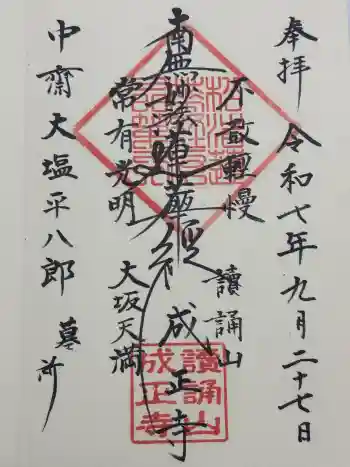 奉拝 令和七年九月二十七日
不敢輕慢 讀誦山
南無妙法蓮華経 成正寺
常有光明 大坂天満
中齋大塩平八郎 墓所
讀誦山
成正寺